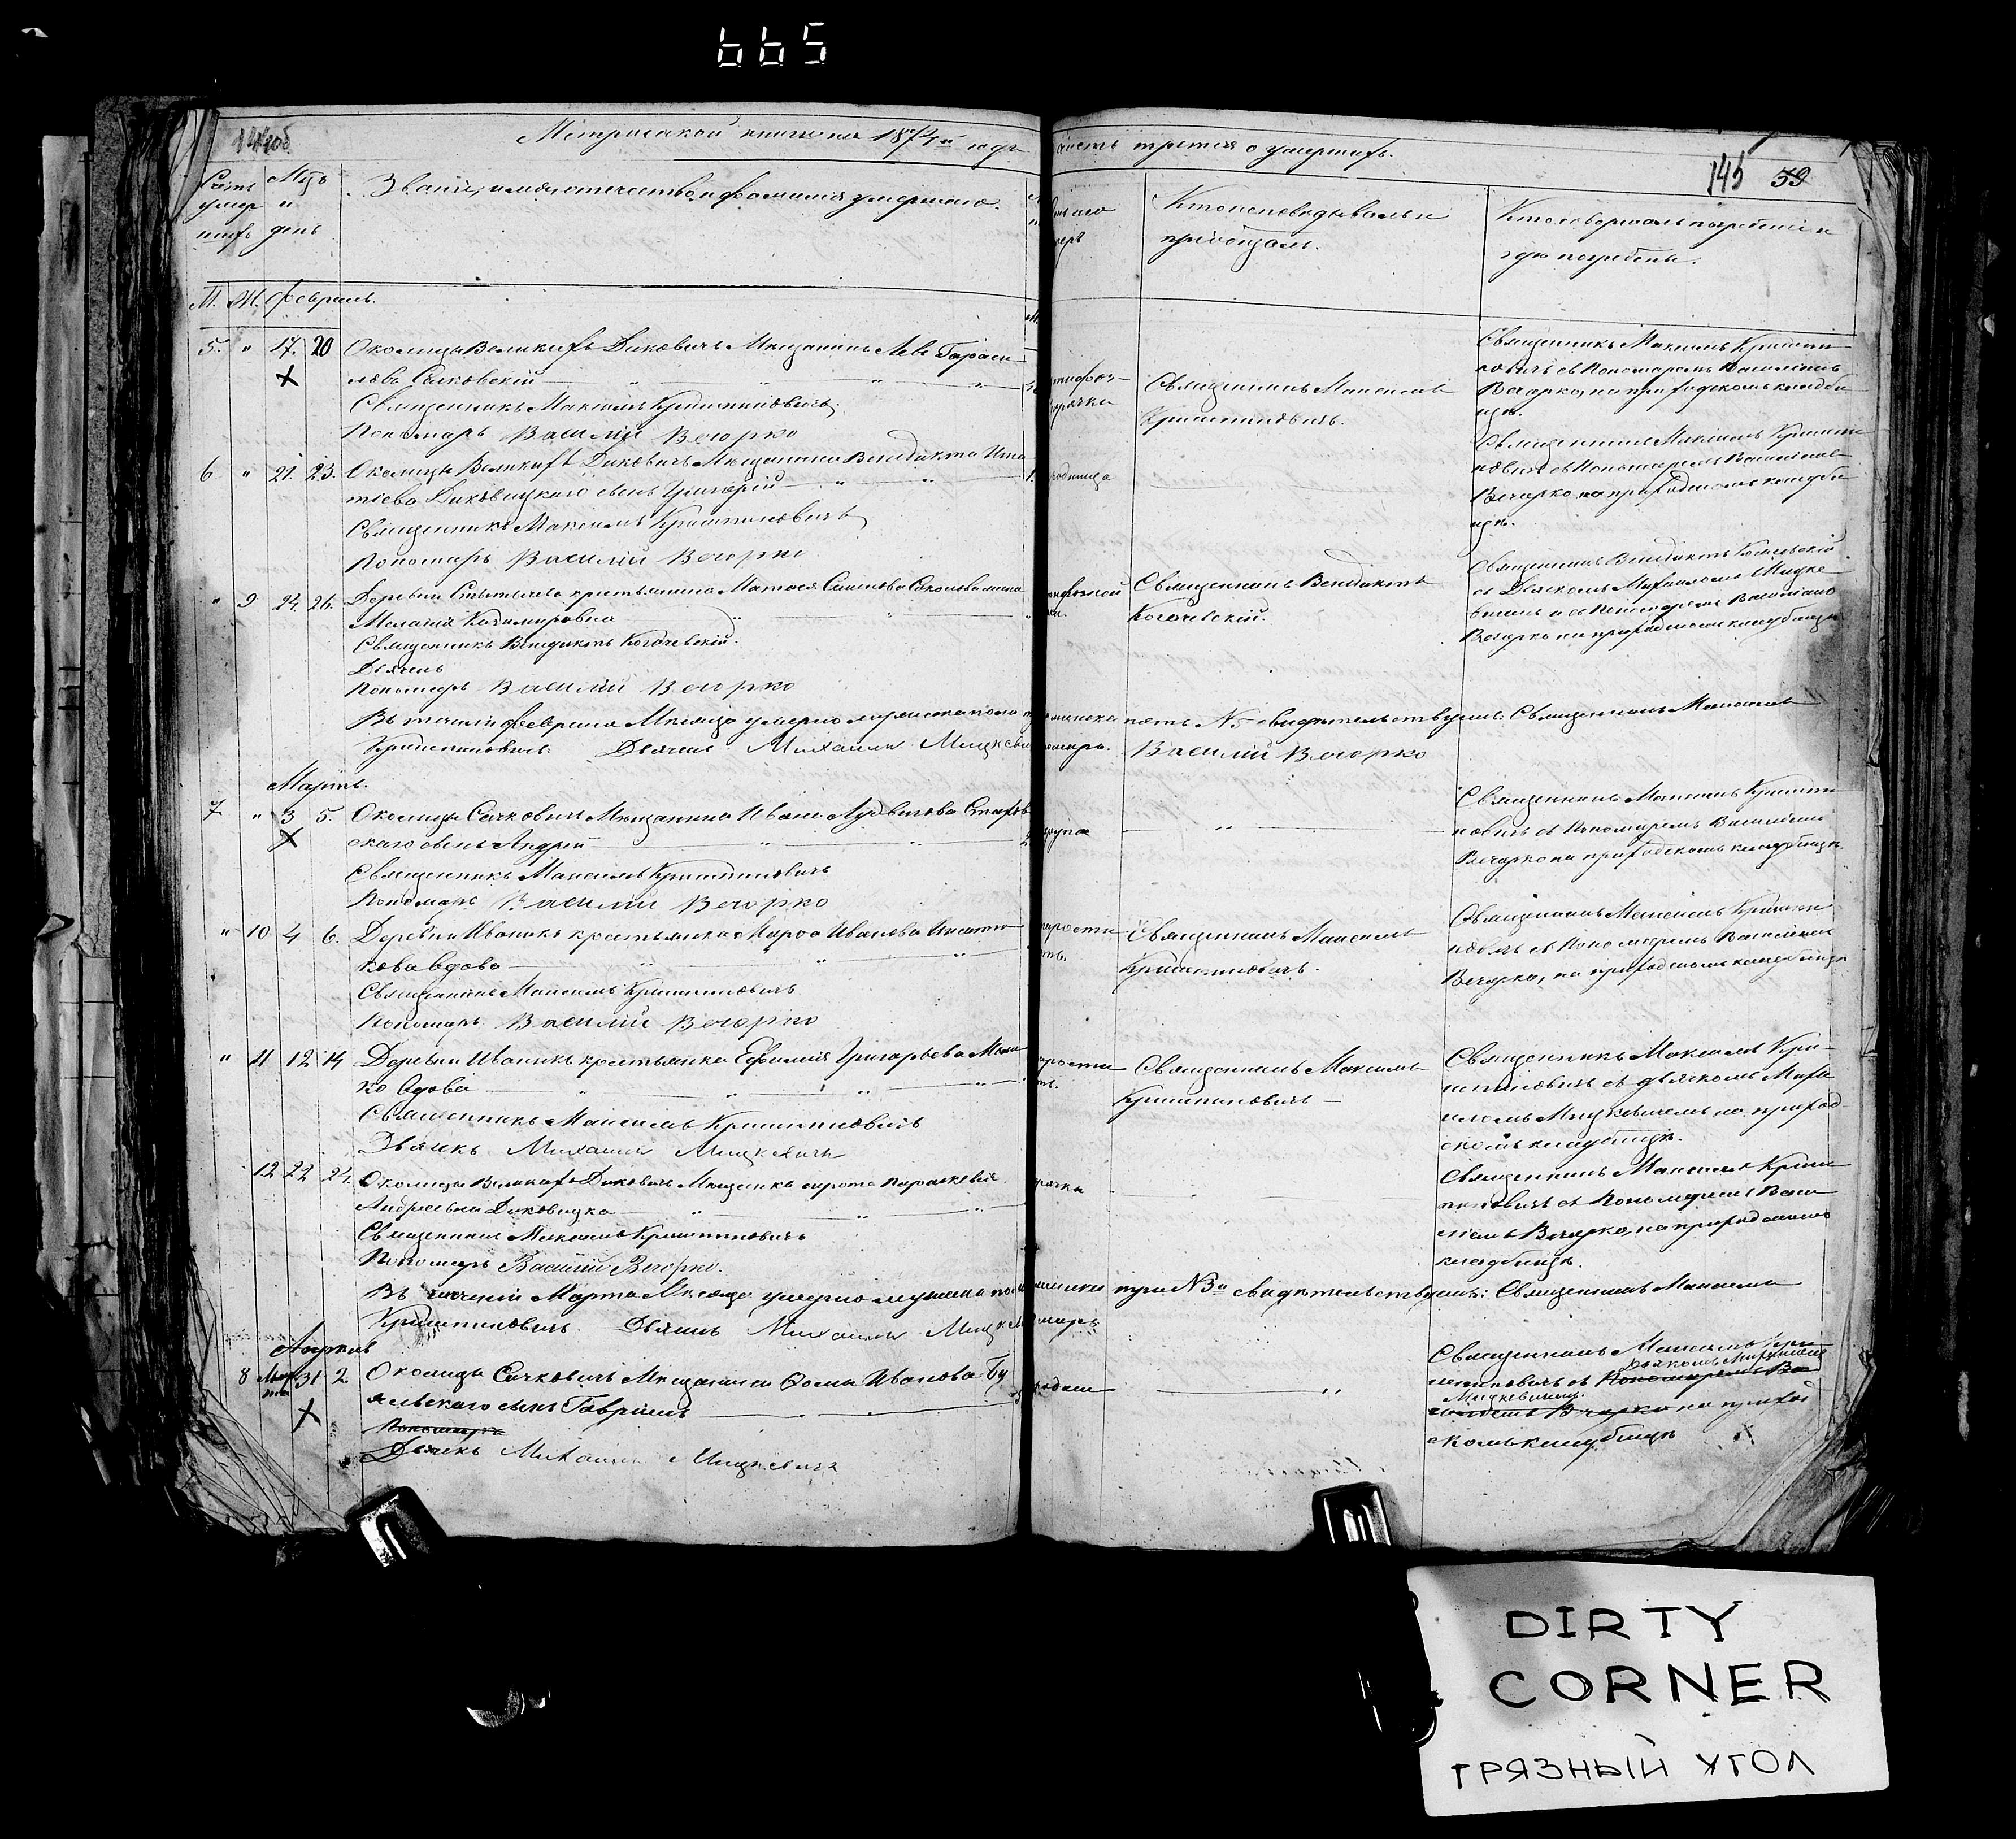 665
144об
Метрической книги на 1874й годъ
часть третія о умершихъ.
145 39
Счетъ умершихъ
Мѣс. и день
Званіе, имя, отечество и фамилія умершаго.
Кто исповѣдывалъ и пріобщалъ.
Кто совершалъ погребеніе и
гдѣ погребены.
М. Ж. Февраль.
5. " 17. 20 Околицы Великихъ Диковичъ Мѣщанинъ Левъ Гараси-
мовъ Сачковскій
Священникъ Максимъ Криштиновичъ
Пономарь Василій Вечорко
горячки
Священникъ Максимъ
Криштиновичъ.
Священникъ Максимъ Кришти
новичъ съ Пономаремъ Василіемъ
Вечорко, на приходскомъ кладби
щѣ.
6 " 21. 23. Околицы Великихъ Диковичъ Мѣщанина Венедикта Игна
тіева Диковицкаго сынъ Григорій
Священникъ Максимъ Криштиновичъ
Пономарь Василій Вечорко
родимца
Священникъ Максимъ Кришти
новичъ съ Пономаремъ Василіемъ
Вечорко, на приходскомъ кладби
щѣ.
" 9 24. 26. Деревни крестьянина Матвея Семенова жена
Меланія Казимировна
Священникъ Венедиктъ
Дьячекъ
Пономарь Василій Вечорко
Священникъ Венедиктъ
Священникъ Венедиктъ
съ Дьячкомъ Михаиломъ Мицке
вичемъ и съ Пономаремъ Василіемъ
Вечорко на приходскомъ кладбищѣ.
Въ теченіи Февраля Мѣсяца умерло мужеска пола
женска пять №5 свидѣтельствуемъ: Священникъ Максимъ
Криштиновичъ. Дьячекъ Михаилъ Мицкевичъ
Пономарь. Василій Вечорко
Мартъ.
7 " 3 5. Околицы Сачковичъ Мѣщанина Ивана Лудвикова
скаго сынъ Андрей
Священникъ Максимъ Криштиновичъ
Пономарь Василій Вечорко
крупа
Священникъ Максимъ Кришти
новичъ съ Пономаремъ Василіемъ
Вечорко на приходскомъ кладбищѣ.
" 10 4 6. Деревни Иваникъ крестьянка Марфа Иванова
кова вдова
Священникъ Максимъ Криштиновичъ
Пономарь Василій Вечорко
старости
Священникъ Максимъ
Криштиновичъ.
Священникъ Максимъ Кришти
новичъ съ Пономаремъ Василіемъ
Вечорко, на приходскомъ кладбищѣ
" 11 12 14 Деревни Иваникъ крестьянка Евфимія Григорьева
ко вдова
Священникъ Максимъ Криштиновичъ
Дьячекъ Михаилъ Мицкевичъ
старости
Священникъ Максимъ
Криштиновичъ
Священникъ Максимъ Кри-
штиновичъ съ дьячкомъ Миха
иломъ Мицкевичемъ на приход-
скомъ кладбищѣ.
12 22 24. Околицы Великихъ Диковичъ Мѣщанка сирота Параскевія
Андреевна Диковицка
Священникъ Максимъ Криштиновичъ
Пономарь Василій Вечорко.
горячки
Священникъ Максимъ Кришти
новичъ съ Пономаремъ Васи
ліемъ Вечорко, на приходскомъ
кладбищѣ.
Въ теченіи Марта Мѣсяца умерло мужеска пола
женска три №3й свидѣтельствуемъ: Священникъ Максимъ
Криштиновичъ Дьячекъ Михаилъ Мицкевичъ Пономарь
Апрѣль
8 Марта 31 2 Околицы Сачковичъ Мѣщанина Фомы Иванова Бу
яльскаго сынъ Гавріилъ
Пономарь
Дьячекъ Михаилъ Мицкевичъ
Священникъ Максимъ Кри
штиновичъ съ Дьячкомъ Михаиломъ Пономаремъ Ва
Мицкевичемъ силіемъ Вечорко на приход
скомъ кладбищѣ
DIRTY
CORNER
ГРЯЗНЫЙ УГОЛ